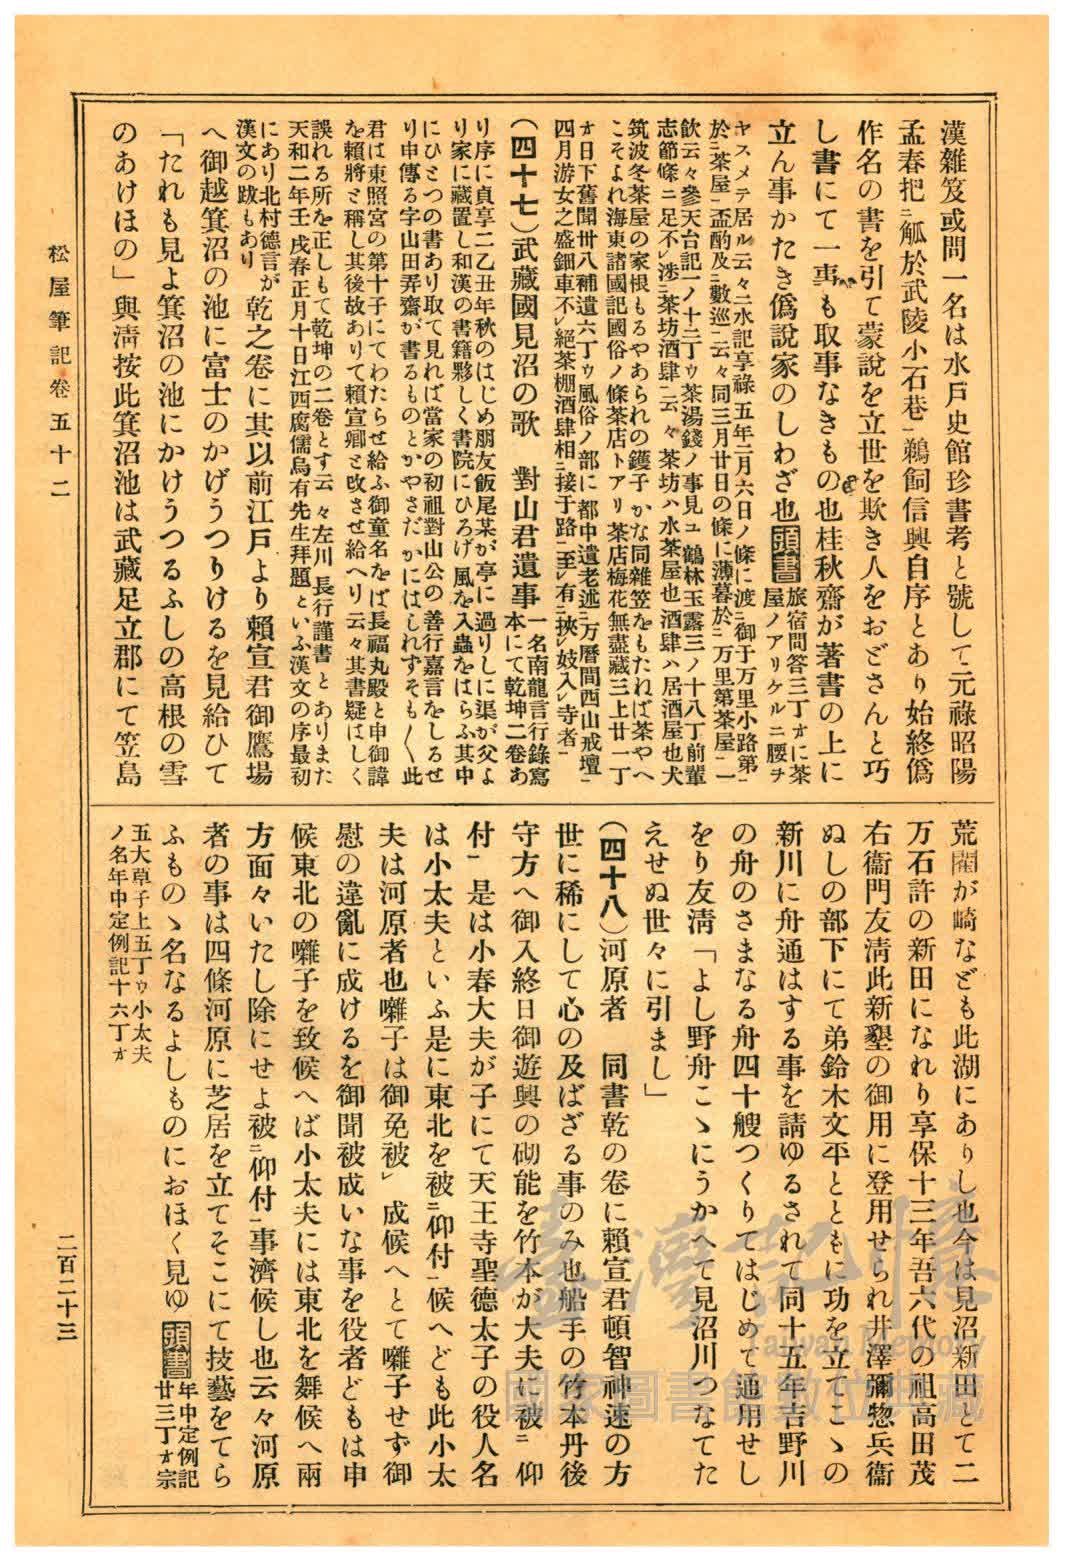 漢雜笈或問一名は水戶史館珍書考と號して元祿昭陽
孟春把ニ觚於武陵小石巷ニ鵜飼信興自序とあり始終僞
作名の書を引て蒙說を立世を欺き人をおどさんと巧
し書にて一事も取事なきもの也桂秋齋が著書の上に
立ん事かたき僞說家のしわざ也 頭書 旅宿問答三丁オに茶
屋ノアリケルニ腰ヲ
ヤスメテ居ル云々二水記享祿五年二月六日ノ條に渡ニ御于万里小路第一
於ニ茶屋一盃酌及ニ數巡一云々同三月廿日の條に薄暮於ニ万里第茶屋一一
飮云々參天台記一ノ十二丁ウ茶湯錢ノ事見ユ鶴林玉露三ノ十八丁前輩
志節條ニ足不レ涉ニ茶坊酒肆一云々茶坊ハ水茶屋也酒肆ハ居酒屋也犬
筑波冬茶屋の家根もるやあられの鑊子かな同雜笠をもたねば茶やへ
こそよれ海東諸國記國俗ノ條茶店トアリ茶店梅花無盡藏三上廿一丁
オ日下舊聞卅八補遺六丁ウ風俗ノ部に都中遺老述ニ万曆間西山戒壇一
四月游女之盛鈿車不レ絕茶棚酒肆相ニ接于路一至レ有ニ挾レ妓入レ寺者一
(四十七)武藏國見沼の歌　對山君遺事 一名南龍言行錄寫
本にて乾坤二卷あ
り序に貞享二乙丑年秋のはじめ朋友飯尾某が亭に過りしに渠が父よ
り家に藏置し和漢の書籍夥しく書院にひろげ風を入蟲をはらふ其中
にひとつの書あり取て見れば當家の初祖對山公の善行嘉言をしるせ
り申傳る字山田弄齋が書るものとかやさだかにはしれずそも〱此
君は東照宮の第十子にてわたらせ給ふ御童名をば長福丸殿と申御諱
を賴將と稱し其後故ありて賴宣卿と改させ給へり云々其書疑はしく
誤れる所を正しもて乾坤の二卷とす云々左川長行謹書とありまた
天和二年壬戌春正月十日江西腐儒烏有先生拜題といふ漢文の序最初
にあり北村德言が
漢文の跋もあり 乾之卷に其以前江戶より賴宣君御鷹場
へ御越箕沼の池に富士のかげうつりけるを見給ひて
「たれも見よ箕沼の池にかけうつるふしの高根の雪
のあけほの」與淸按此箕沼池は武藏足立郡にて笠島
荒閑が崎なども此湖にありし也今は見沼新田とて二
万石許の新田になれり享保十三年吾六代の祖高田茂
右衞門友淸此新墾の御用に登用せられ井澤彌惣兵衞
ぬしの部下にて弟鈴木文平とともに功を立てこゝの
新川に舟通はする事を請ゆるされて同十五年吉野川
の舟のさまなる舟四十艘つくりてはじめて通用せし
をり友淸「よし野舟こゝにうかへて見沼川つなてた
えせぬ世々に引まし」
(四十八)河原者　同書乾の卷に賴宣君頓智神速の方
世に稀にして心の及ばざる事のみ也船手の竹本丹後
守方へ御入終日御遊興の砌能を竹本が大夫に被ニ仰
付一是は小春大夫が子にて天王寺聖德太子の役人名
は小太夫といふ是に東北を被ニ仰付一候へども此小太
夫は河原者也囃子は御免被」成候へとて囃子せず御
慰の違亂に成けるを御聞被成いな事を役者どもは申
候東北の囃子を致候へば小太夫には東北を舞候へ兩
方面々いたし除にせよ被ニ仰付一事濟候し也云々河原
者の事は四條河原に芝居を立てそこにて技藝をてら
ふものゝ名なるよしものにおほく見ゆ 頭書 年中定例記
廿三丁オ宗
五大草子上五丁ウ小太夫
ノ名年中定例記十六丁オ
松屋筆記卷五十二
二百二十三
臺灣記憶
Taiwan Memory
國家圖書館數位典藏